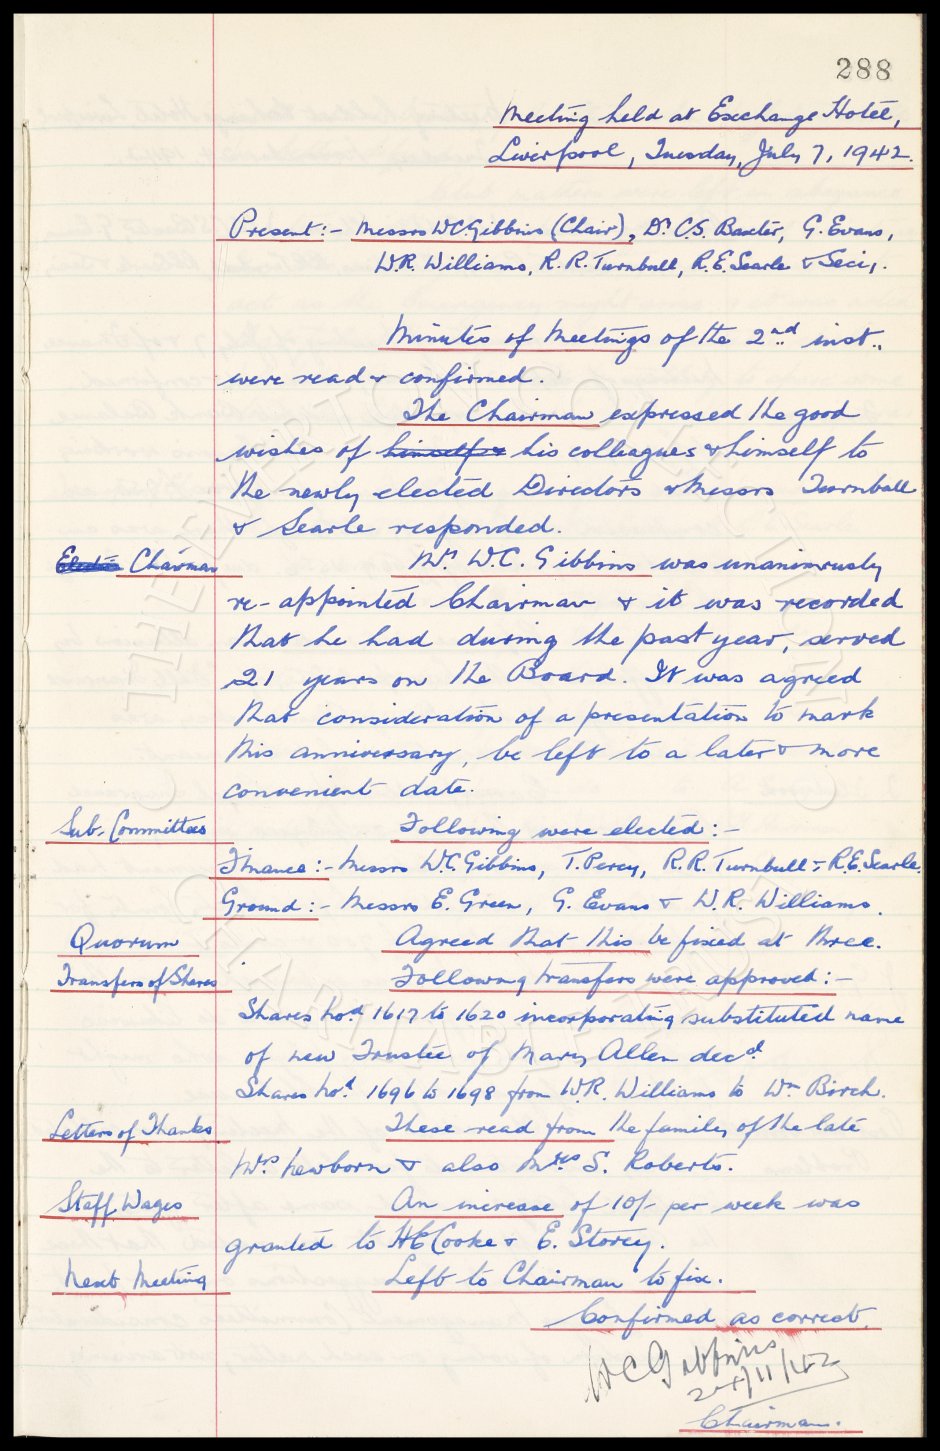 288
Meeting held at Exchange Hotel,
Liverpool, Tuesday, July 7, 1942.
Present:- Messrs W.C. Gibbins (Chair), Dr. C.S. Baxter, G. Evans,
W.R. Williams, R.R. Turnbull, R.E. Searle & Secy.
Minutes of Meetings of the 2nd inst.,
were read & confirmed.
The Chairman expressed the good
wishes of himself & his colleagues & himself to
the newly elected Directors & Messrs Turnbull
& Searle responded.
Election Chairman Mr. W.C. Gibbins was unanimously
re-appointed Chairman & it was recorded
that he had during the past year, served
21 years on the Board. It was agreed
that consideration of a presentation to mark
this anniversary, be left to a later & more
convenient date.
Sub-Committees Following were elected:-
Finance:- Messrs W.C. Gibbins, T. Percy, R.R. Turnbull & R.E. Searle.
Ground:- Messrs E. Green, G. Evans & W.R. Williams.
Quorum Agreed that this be fixed at three.
Transfers of Shares Following transfers were approved:-
Shares No.d 1617 to 1620 incorporating substituted name
of new Trustee of Mary Allen decd
Shares No.d 1696 to 1698 from W.R. Williams to Wm Birch.
Letters of Thanks These read from the family of the late
Mrs Newborn & also Mrs S. Roberts.
Staff Wages An increase of 10/- per week was
granted to H E Cooke & E. Storey.
Next Meeting Left to Chairman to fix.
Confirmed as correct.
W C Gibbins
Chairman.
THE EVERTON COLLECTION
CHARITABLE TRUST